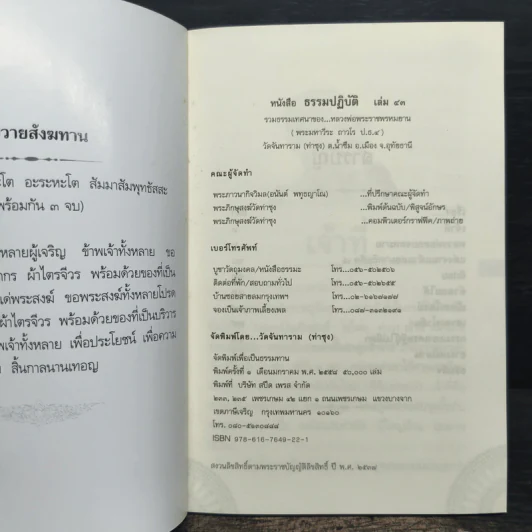 วายสังฆทาน
โต อะระหะโต สัมมาสัมพุทธัสสะ
พร้อมกัน ๓ จบ)
หลายผู้เจริญ ข้าพเจ้าทั้งหลาย ขอ
ผ้าไตรจีวร พร้อมด้วยของที่เป็น
แด่พระสงฆ์ ขอพระสงฆ์ทั้งหลายโปรด
ผ้าไตรจีวร พร้อมด้วยของที่เป็นบริวาร
พเจ้าทั้งหลาย เพื่อประโยชน์ เพื่อความ
สิ้นกาลนานเทอญ
หนังสือ ธรรมปฏิบัติ เล่ม ๔๓
รวมธรรมเทศนาของ...หลวงพ่อพระราชพรหมยาน
(พระมหาวีระ ถาวโร ป.ธ.๔)
วัดจันทาราม (ท่าซุง) ต.น้ำซึม อ.เมือง จ.อุทัยธานี
คณะผู้จัดทำ
พระภาวนากิจวิมล(อนันต์ พทฺธญาโณ) ...ที่ปรึกษาคณะผู้จัดทำ
พระภิกษุสงฆ์วัดท่าซุง ...พิมพ์ต้นฉบับ/พิสูจน์อักษร
พระภิกษุสงฆ์วัดท่าซุง ...คอมพิวเตอร์กราฟฟิค/ภาพถ่าย
เบอร์โทรศัพท์
บูชาวัตถุมงคล/หนังสือธรรมะ โทร...๐๕๖-๕๐๒๕๐๖
ติดต่อที่พัก/สอบถามทั่วไป โทร...๐๕๖-๕๐๒๖๕๕
บ้านซอยสายลมกรุงเทพฯ
จองเป็นเจ้าภาพเลี้ยงเพล
จัดพิมพ์โดย...วัดจันทาราม (ท่าซุง)
จัดพิมพ์เพื่อเป็นธรรมทาน
พิมพ์ครั้งที่ ๑ เดือนมกราคม พ.ศ. ๒๕๕๘ ๕๐,๐๐๐ เล่ม
พิมพ์ที่ บริษัท สปีด เพรส จำกัด
๒๓๓, ๒๓๕ เพชรเกษม ๔๒ แยก ๑ ถนนเพชรเกษม แขวงบางจาก
เขตภาษีเจริญ กรุงเทพมหานคร ๑๐๑๖๐
โทร. ๐๘๐-๕๒๓๐๘๘๘
ISBN 978-616-7649-22-1
สงวนลิขสิทธิ์ตามพระราชบัญญัติลิขสิทธิ์ ปี พ.ศ. ๒๕๓๗